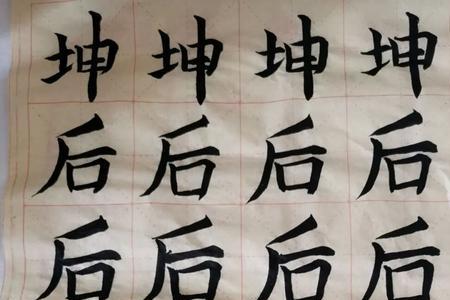 坤坤坤坤
后后后后
后后后后